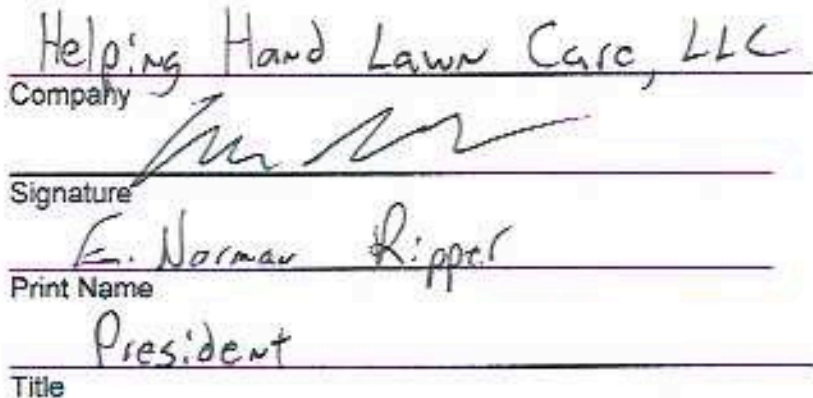 Helping Hand Lawn Care, LLC
Company
Signature
E. Norman Ripper
Print Name
President
Title